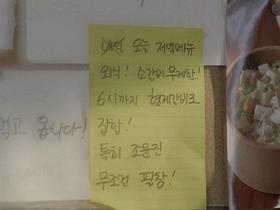 오늘 저녁메뉴
외식! 소갈비무제한!
6시까지 형제갈비로
집합!
특히 조윤진
무조건 필참!
먹고 옵니다!